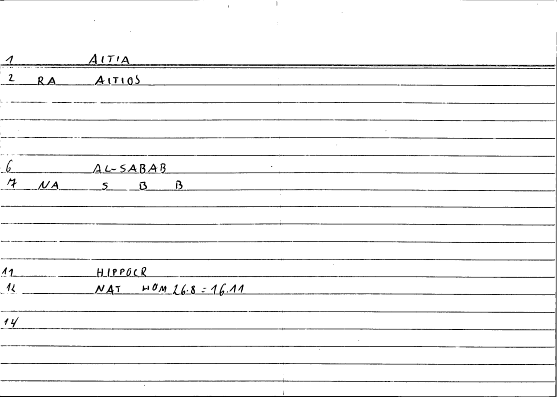 1 AITIA
2 RA AITIOS
6 AL-SABAB
7 NA S B B
11 HIPPOCR
12 NAT HOM 26.8 = 16.11
14